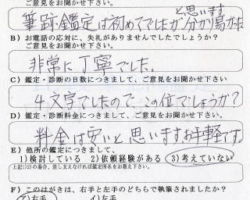 ご意見をお聞かせ下さい。
と思います
筆跡鑑定は初めてでしたが 分かり易かった
B) お電話の応対に、失礼がありませんでしたでしょうか?
ご意見をお聞かせ下さい。
非常に丁寧でした。
C) 鑑定・診断の日数につきまして、ご意見をお聞かせ下さい。
4文字でしたので、この位でしょうか?
D) 鑑定・診断料金につきまして、ご意見をお聞かせ下さい。
料金は安いと思います
E) 他所の鑑定につきまして、
1)検討している 2)依頼経験がある 3)考えていない
F) このはがきは、右手と左手のどちらで執筆されましたか?
右手 左手